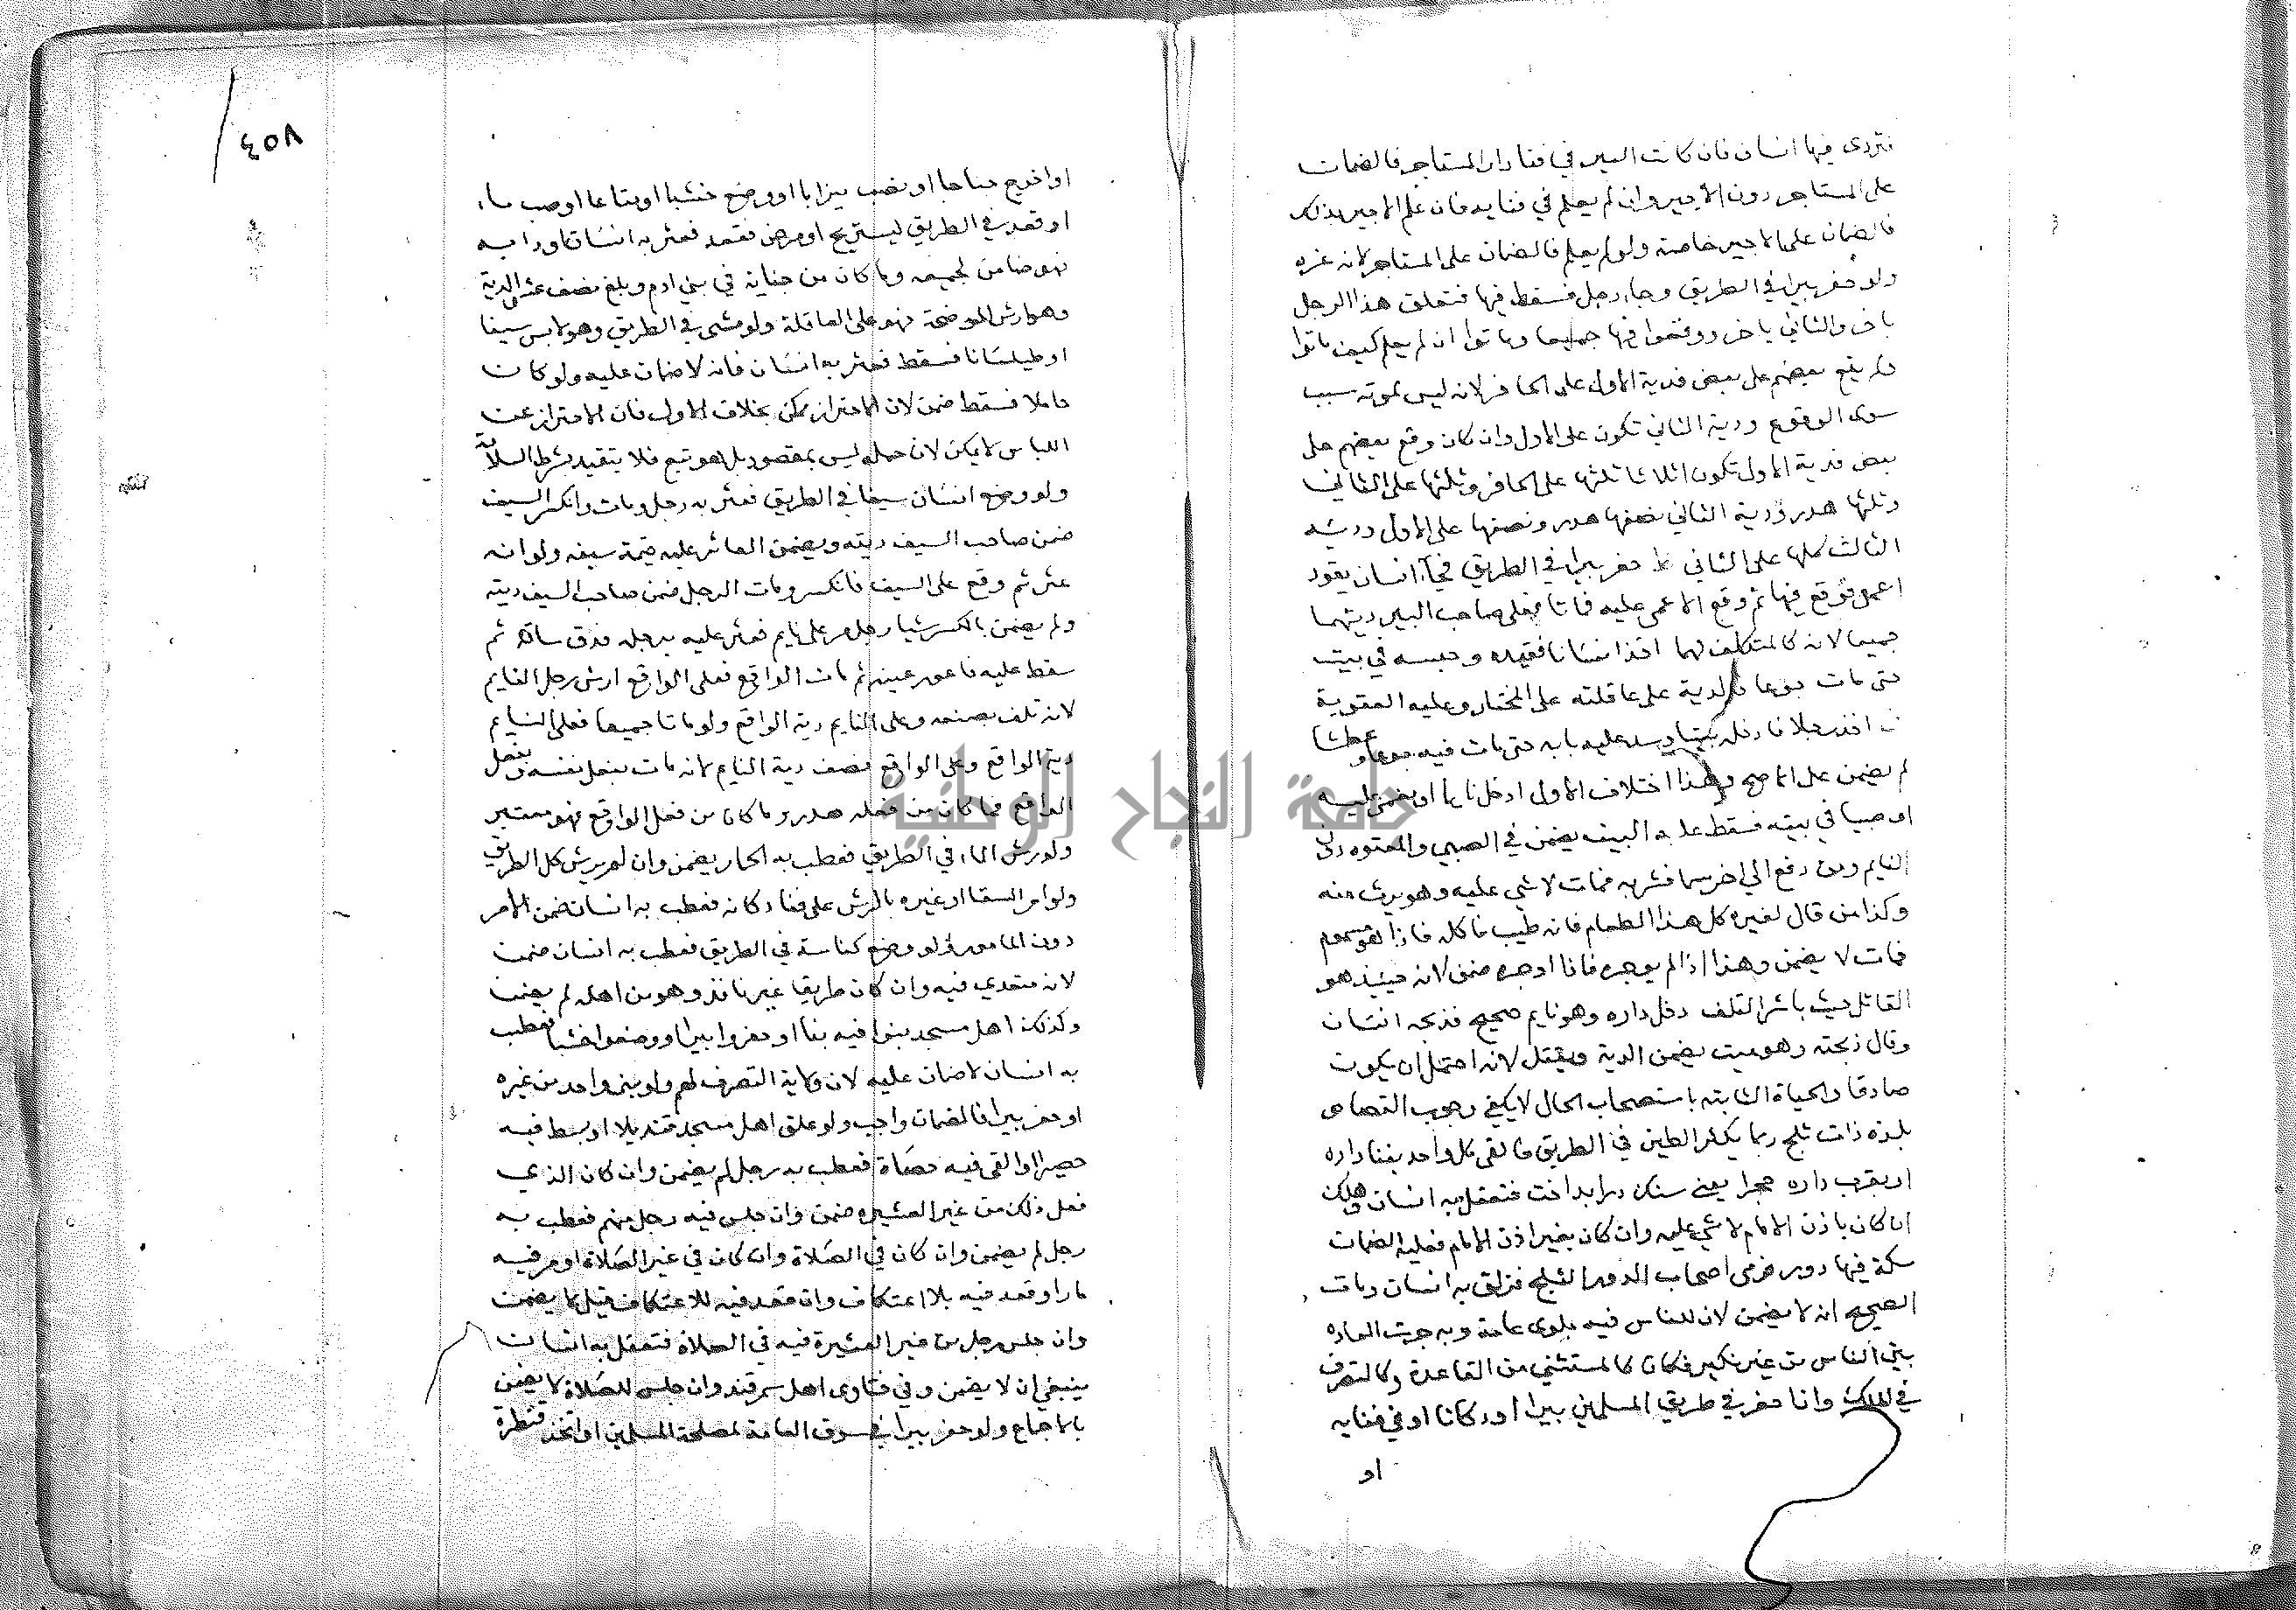 فتردى فيها انسان فان كانت البير في فنا دار المستاجر فالضمان
على المستاجر دون الاجير وان لم يعلم في فنايه فان علم الاجير بذلك
فالضمان على الاجير خاصة ولو لم يعلم فالضمان على المستاجر لانه غره
ولو حفر بيرا في الطريق وجاء رجل فسقط فيها فتعلق هذا الرجل
باخر والثاني باخر ووقعوا فيها جميعا وماتوا ان لم يعلم كيف ماتوا
ولم يقع بعضهم على بعض فدية الاول على الحافر لانه ليس لموته سبب
سوى الوقوع ودية الثاني تكون على الاول وان كان وقع بعضهم على
بعض فدية الاول تكون اثلاثا ثلثها على الحافر وثلثها على الثاني
وثلثها هدر ودية الثاني نصفها هدر ونصفها على الاول ودية
الثالث كلها على الثاني حفر بيرا في الطريق فجاء انسان يقود
اعمى فوقع فيها ثم وقع الاعمى عليه فماتا فعلى صاحب البير ديتهما
جميعا لانه كالمتكلف لهما اخذ انسانا فقيده وحبسه في بيت
حتى مات جوعا فالدية على عاقلته على المختار وعليه العقوبة
اخذ رجلا فادخله بيتا وسد عليه بابه حتى مات فيه جوعا وعطشا
لم يضمن على الاصح وهذا اختلاف الاول ادخل نايما او مغمى عليه
او صبيا في بيته فسقط عليه البيت يضمن في الصبي والمعتوه دون
النايم ومن دفع الى اخر سما فشربه فمات لا شي عليه وهو يرث منه
وكذا من قال لغيره كل هذا الطعام فانه طيب فاكله فاذا هو مسموم
فمات لا يضمن وهذا اذا لم يوجره فاذا اوجره ضمن لانه حينيذ هو
القاتل حيث باشر التلف دخل داره وهو نايم صحيح فذبحه انسان
وقال ذبحته وهو ميت يضمن الدية ولا يقتل لانه احتمل ان يكون
صادقا والحياة الثابته باستصحاب الحال لا يكفي وجوب القصاص
بلده ذات ثلج ربما يكثر الطين في الطريق فالقى كل واحد بفنا داره
او بقرب داره حجرا يعني سنك در ابداخت فتعقل به انسان وهلك
ان كان باذن الامام لا شي عليه وان كان بغير اذن الامام فعليه الضمان
سكة فيها دور فرمى اصحاب الدور الثلج فزلق به انسان ومات
الصحيح انه لا يضمن لان للناس فيه بلوى عامة وبه جرت العاده
بين الناس من غير نكير فكان كالمستثنى من القاعدة وكالتصرف
في الملك واذا حفر في طريق المسلمين بيرا او دكانا او في فنايه
او
٤٥٨
او اخرج جناحا او نصب ميزابا او وضع خشبا او متاعا او صب ماء
او قعد في الطريق ليستريح او مرض فقعد فعثر به انسان او دابه
فهو ضامن لجميعه وما كان من جناية في بني ادم وبلغ نصف عشر الدية
وهو ارش الموضحة فهو على العاقلة ولو مشى في الطريق وهو لابس سيفا
او طيلسانا فسقط فعثر به انسان فانه لا ضمان عليه ولو كان
حاملا فسقط ضمن لان الاحتراز ممكن بخلاف الاول فان الاحتراز عن
اللباس لا يمكن لان حمله ليس بمقصود بل هو تبع فلا يتقيد بشرط السلامة
ولو وضع انسان سيفا في الطريق فعثر به رجل ومات وانكسر السيف
ضمن صاحب السيف ديته ويضمن العاثر عليه قيمة سيفه ولو انه
عثر ثم وقع على السيف فانكسر ومات الرجل ضمن صاحب السيف ديته
ولم يضمن بالكسر شيا رجل مر على نايم فعثر عليه برجله فدق ساقه ثم
سقط عليه فاعور عينه ثم مات الواقع فعلى الواقع ارش رجل النايم
لانه تلف بصنعه وعلى النايم دية الواقع ولو ماتا جميعا فعلى النايم
دية الواقع وعلى الواقع نصف دية النايم لانه مات بفعل نفسه وبفعل
الواقع فما كان من فعله هدر وما كان من فعل الواقع فهو معتبر
ولو رش الماء في الطريق فعطب به الحمار يضمن وان لم يرش كل الطريق
ولو امر السقا او غيره بالرش على فنا دكانه فعطب به انسان ضمن الامر
دون المامور ولو وضع كناسة في الطريق فعطب به انسان ضمن
لانه متعدي فيه وان كان طريقا غير نافذ وهو من اهله لم يضمن
وكذلك اهل مسجد بنوا فيه بنا او حفروا بيرا ووضعوا خشبا فعطب
به انسان لا ضمان عليه لان ولاية التصرف لهم ولو بنى واحد من غيره
او حفر بيرا فالضمان واجب ولو علق اهل مسجد قنديلا او بسط فيه
حصيرا او القى فيه حصاة فعطب به رجل لم يضمن وان كان الذي
فعل ذلك من غير العشيره ضمن وان جلس فيه رجل منهم فعطب به
رجل لم يضمن وان كان في الصلاة وان كان في غير الصلاة او مر فيه
مارا وقعد فيه بلا اعتكاف وان قعد فيه للاعتكاف قيل لا يضمن
وان جلس رجل من غير العشيرة فيه في الصلاة فتعقل به انسان
ينبغي ان لا يضمن وفي فتاوى اهل سمرقند وان جلس للصلاة لا يضمن
بالاجماع ولو حفر بيرا في سوق العامة لمصلحة المسلمين او اتخذ قنطرة
جامعة النجاح الوطنية